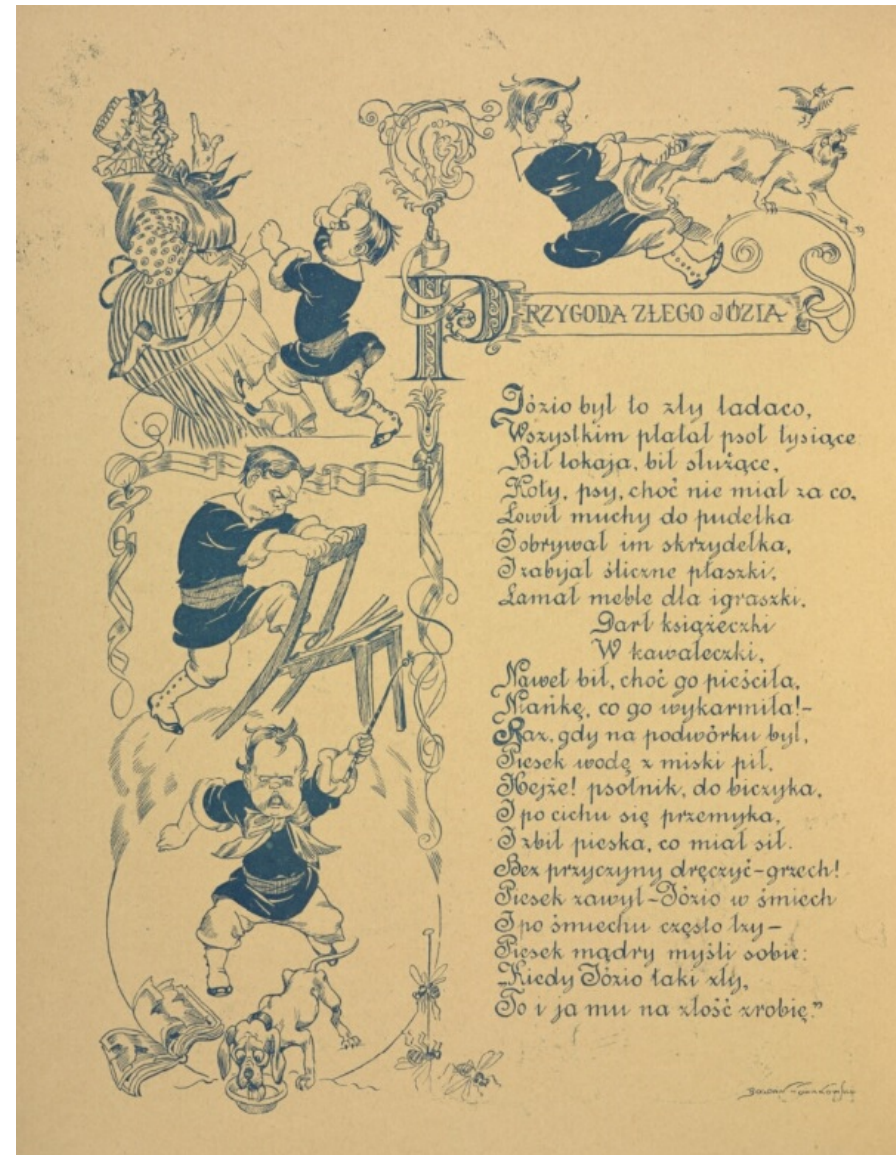 PRZYGODA ZŁEGO JÓZIA
Józio był to zły ladaco,
Wszystkim płatał psot tysiące
Bił lokaja, bił służące,
Koty, psy, choć nie miał za co.
Łowił muchy do pudełka
I obrywał im skrzydełka,
I zabijał śliczne ptaszki,
Łamał meble dla igraszki.
Darł książeczki
W kawałeczki,
Nawet bił, choć go pieściła,
Niańkę, co go wykarmiła!-
Raz, gdy na podwórku był,
Piesek wodę z miski pił.
Hejże! psotnik, do biczyka,
I po cichu się przemyka,
I zbił pieska, co miał sił.
Bez przyczyny dręczyć-grzech!
Piesek zawył-Józio w śmiech
I po śmiechu często łzy-
Piesek mądry myśli sobie:
„Kiedy Józio taki zły,
To i ja mu na złość zrobię."